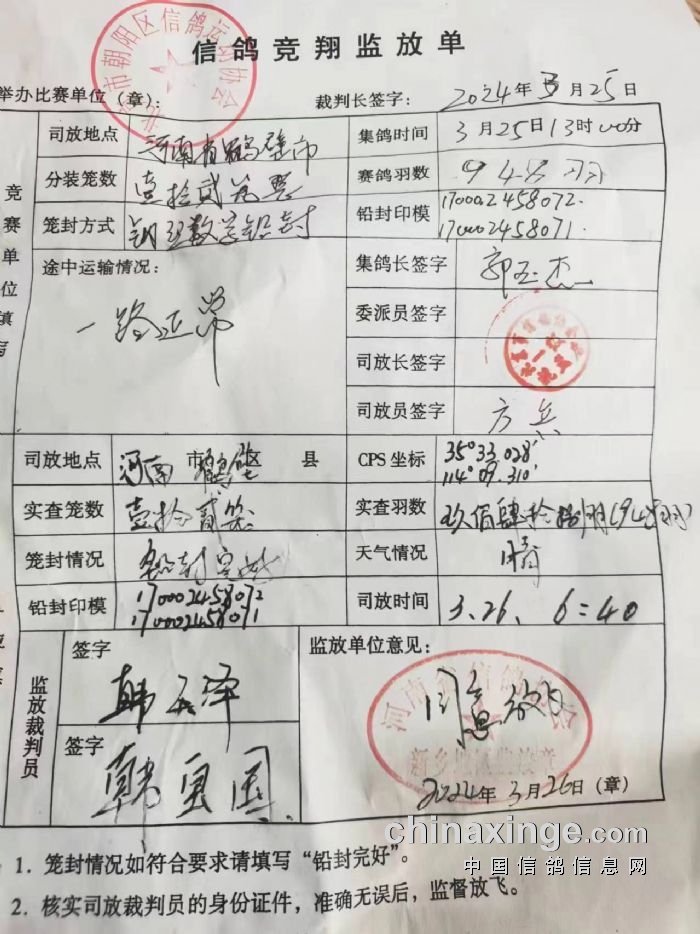 信鸽竞翔监放单
举办比赛单位（章）： 裁判长签字： 2024年3月25日
市朝阳区信鸽运动协会
竞赛单位填写
司放地点 河南省鹤壁市 集鸽时间 3月25日13时00分
分装笼数 壹拾贰笼 赛鸽羽数 948羽
笼封方式 数字铅封 铅封印模 170002458072.
170002458071.
途中运输情况： 一路正常
集鸽长签字 郭玉杰
委派员签字
司放长签字
司放员签字 方兵
司放地点 河南 市 鹤壁 区 县 CPS坐标 35°33.028′
114°09.310′
实查笼数 壹拾贰笼 实查羽数 玖佰肆拾捌羽(948羽)
笼封情况 铅封完好 天气情况 晴
铅封印模 170002458072
170002458071
司放时间 3.26. 6:40
监放裁判员
签字 韩天泽
签字 韩国
监放单位意见：
同意放飞
河南省信鸽协会
新乡
2024年3月26日（章）
1. 笼封情况如符合要求请填写“铅封完好”。
2. 核实司放裁判员的身份证件，准确无误后，监督放飞。
chinaxinge.com
中国信鸽信息网